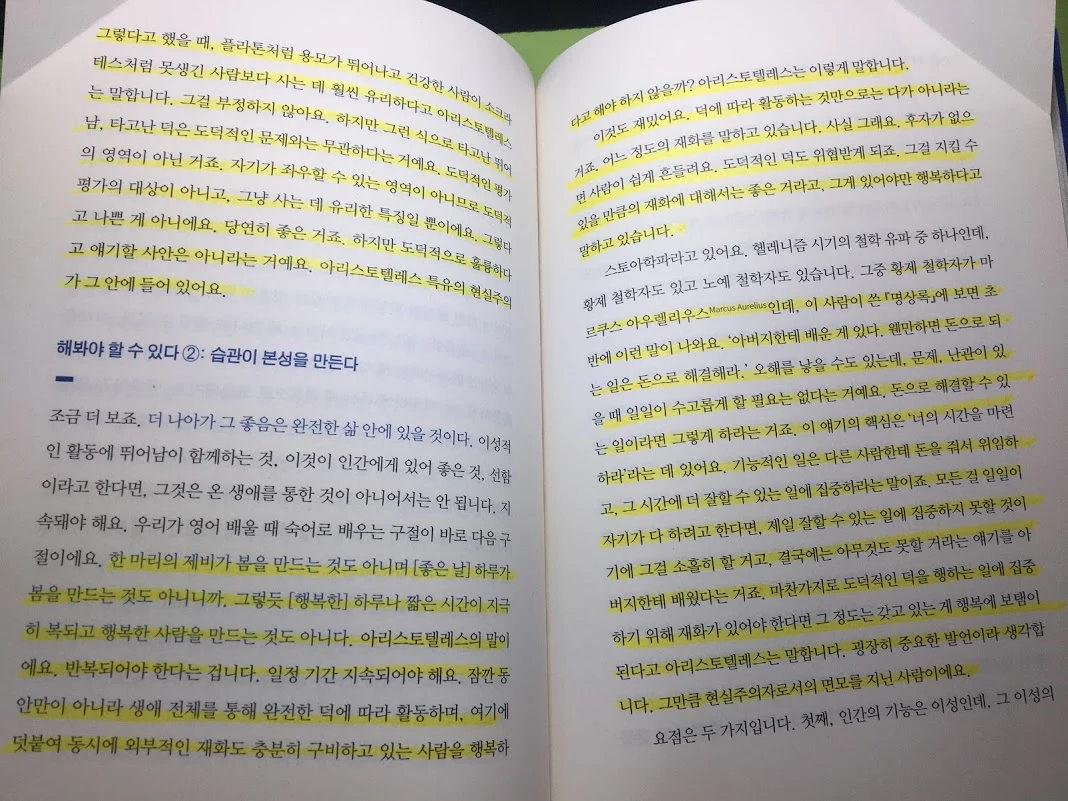 그렇다고 했을 때, 플라톤처럼 용모가 뛰어나고 건강한 사람이 소크라
테스처럼 못생긴 사람보다 사는 데 훨씬 유리하다고 아리스토텔레스
는 말합니다. 그걸 부정하지 않아요. 하지만 그런 식으로 타고난 뛰어
남, 타고난 덕은 도덕적인 문제와는 무관하다는 거예요. 도덕적인 평가
의 영역이 아닌 거죠. 자기가 좌우할 수 있는 영역이 아니므로 도덕적
평가의 대상이 아니고, 그냥 사는 데 유리한 특징일 뿐이에요. 그렇다
고 나쁜 게 아니에요. 당연히 좋은 거죠. 하지만 도덕적으로 훌륭하다
고 얘기할 사안은 아니라는 거예요. 아리스토텔레스 특유의 현실주의
가 그 안에 들어 있어요.
해봐야 할 수 있다 ②: 습관이 본성을 만든다
조금 더 보죠. 더 나아가 그 좋음은 완전한 삶 안에 있을 것이다. 이성적
인 활동에 뛰어남이 함께하는 것, 이것이 인간에게 있어 좋은 것, 선함
이라고 한다면, 그것은 온 생애를 통한 것이 아니어서는 안 됩니다. 지
속돼야 해요. 우리가 영어 배울 때 숙어로 배우는 구절이 바로 다음 구
절이에요. 한 마리의 제비가 봄을 만드는 것도 아니며 [좋은 날] 하루가
봄을 만드는 것도 아니니까. 그렇듯 [행복한] 하루나 짧은 시간이 지극
히 복되고 행복한 사람을 만드는 것도 아니다. 아리스토텔레스의 말이
에요. 반복되어야 한다는 겁니다. 일정 기간 지속되어야 해요. 잠깐 동
안만이 아니라 생애 전체를 통해 완전한 덕에 따라 활동하며, 여기에
덧붙여 동시에 외부적인 재화도 충분히 구비하고 있는 사람을 행복하
다고 해야 하지 않을까? 아리스토텔레스는 이렇게 말합니다.
이것도 재밌어요. 덕에 따라 활동하는 것만으로는 다가 아니라는
거죠. 어느 정도의 재화를 말하고 있습니다. 사실 그래요. 후자가 없으
면 사람이 쉽게 흔들려요. 도덕적인 덕도 위협받게 되죠. 그걸 지킬 수
있을 만큼의 재화에 대해서는 좋은 거라고, 그게 있어야만 행복하다고
말하고 있습니다.
스토아학파라고 있어요. 헬레니즘 시기의 철학 유파 중 하나인데,
황제 철학자도 있고 노예 철학자도 있습니다. 그중 황제 철학자가 마
르쿠스 아우렐리우스Marcus Aurelius인데, 이 사람이 쓴 『명상록』에 보면 초
반에 이런 말이 나와요. ‘아버지한테 배운 게 있다. 웬만하면 돈으로 되
는 일은 돈으로 해결해라.’ 오해를 낳을 수도 있는데, 문제, 난관이 있
을 때 일일이 수고롭게 할 필요는 없다는 거예요. 돈으로 해결할 수 있
는 일이라면 그렇게 하라는 거죠. 이 얘기의 핵심은 ‘너의 시간을 마련
하라’라는 데 있어요. 기능적인 일은 다른 사람한테 돈을 줘서 위임하
고, 그 시간에 더 잘할 수 있는 일에 집중하라는 말이죠. 모든 걸 일일이
자기가 다 하려고 한다면, 제일 잘할 수 있는 일에 집중하지 못할 것이
기에 그걸 소홀히 할 거고, 결국에는 아무것도 못할 거라는 얘기를 아
버지한테 배웠다는 거죠. 마찬가지로 도덕적인 덕을 행하는 일에 집중
하기 위해 재화가 있어야 한다면 그 정도는 갖고 있는 게 행복에 보탬이
된다고 아리스토텔레스는 말합니다. 굉장히 중요한 발언이라 생각합
니다. 그만큼 현실주의자로서의 면모를 지닌 사람이에요.
요점은 두 가지입니다. 첫째, 인간의 기능은 이성인데, 그 이성의